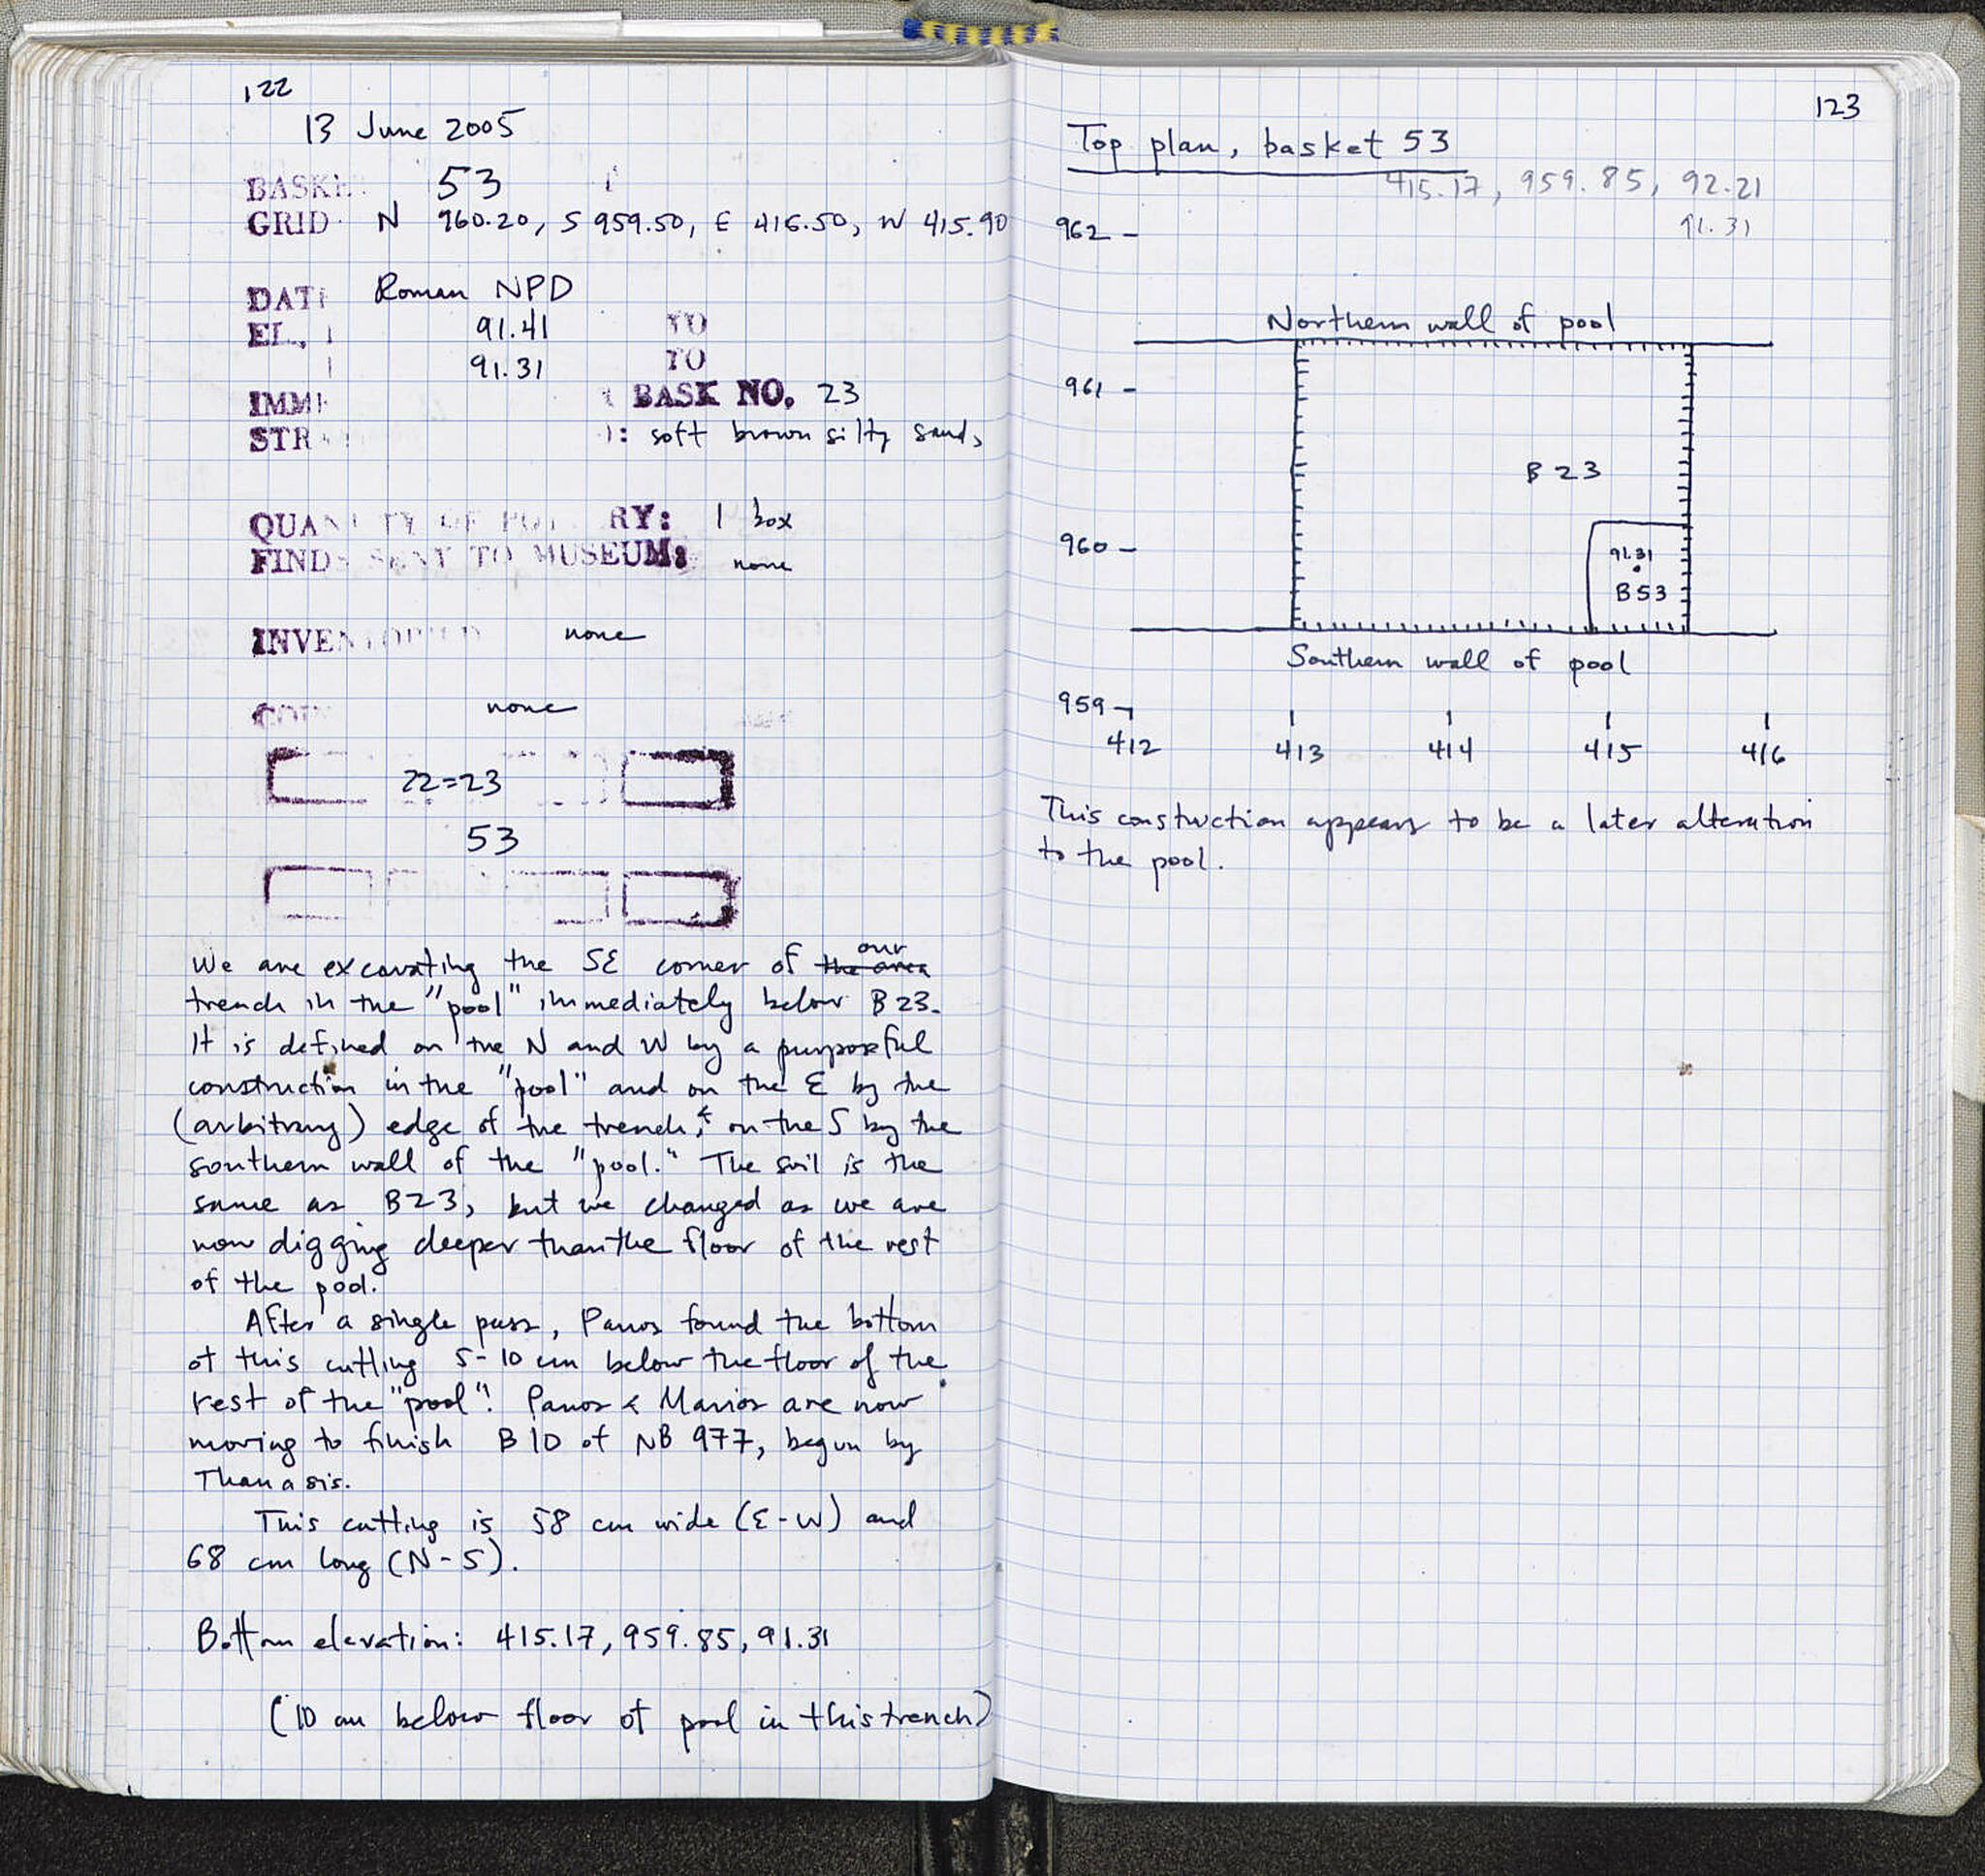 122
13 June 2005
BASKE 53
GRID N 960.20, S 959.50, E 416.50, W 415.90
DATE Roman NPD
EL., 91.41 TO
91.31 TO
IMME BASK NO. 23
STR : soft brown silty sand,
QUANTITY OF POTTERY: 1 box
FINDS SENT TO MUSEUM: none
INVENTORIED none
COIN none
22=23
53
We are excavating the SE corner of the area our
trench in the "pool" immediately below B23.
It is defined on the N and W by a purposeful
construction in the "pool" and on the E by the
(arbitrary) edge of the trench, & on the S by the
southern wall of the "pool." The soil is the
same as B23, but we changed as we are
now digging deeper than the floor of the rest
of the pool.
After a single pass, Panos found the bottom
of this cutting 5-10 cm below the floor of the
rest of the "pool". Panos & Marios are now
moving to finish B10 of NB 977, begun by
Thanasis.
This cutting is 58 cm wide (E-W) and
68 cm long (N-S).
Bottom elevation: 415.17, 959.85, 91.31
(10 cm below floor of pool in this trench)
123
Top plan, basket 53
415.17, 959.85, 92.21
91.31
962
Northern wall of pool
961
B 23
960
91.31
B53
Southern wall of pool
959
412 413 414 415 416
This construction appears to be a later alteration
to the pool.